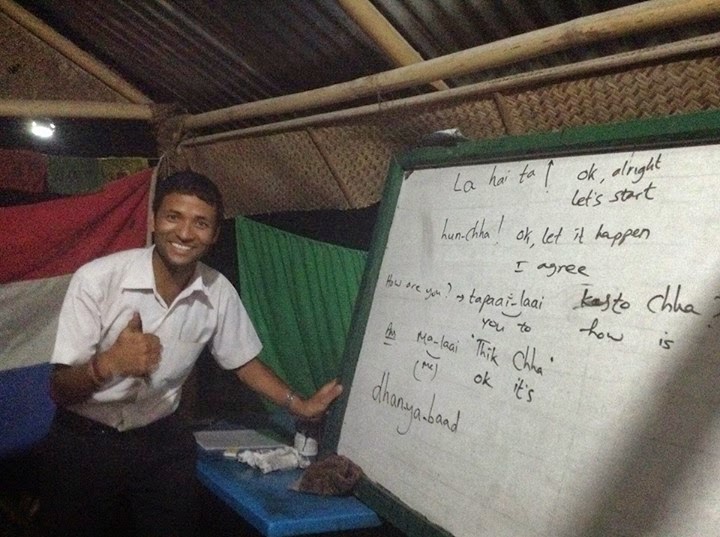 La hai ta! ok, alright
let's start
hun-chha! ok, let it happen
I agree
How are you? → tapaai-laai Kasto chha?
you to how is
Ans Ma-laai "Thik Chha"
(me) ok it's
dhanya-baad